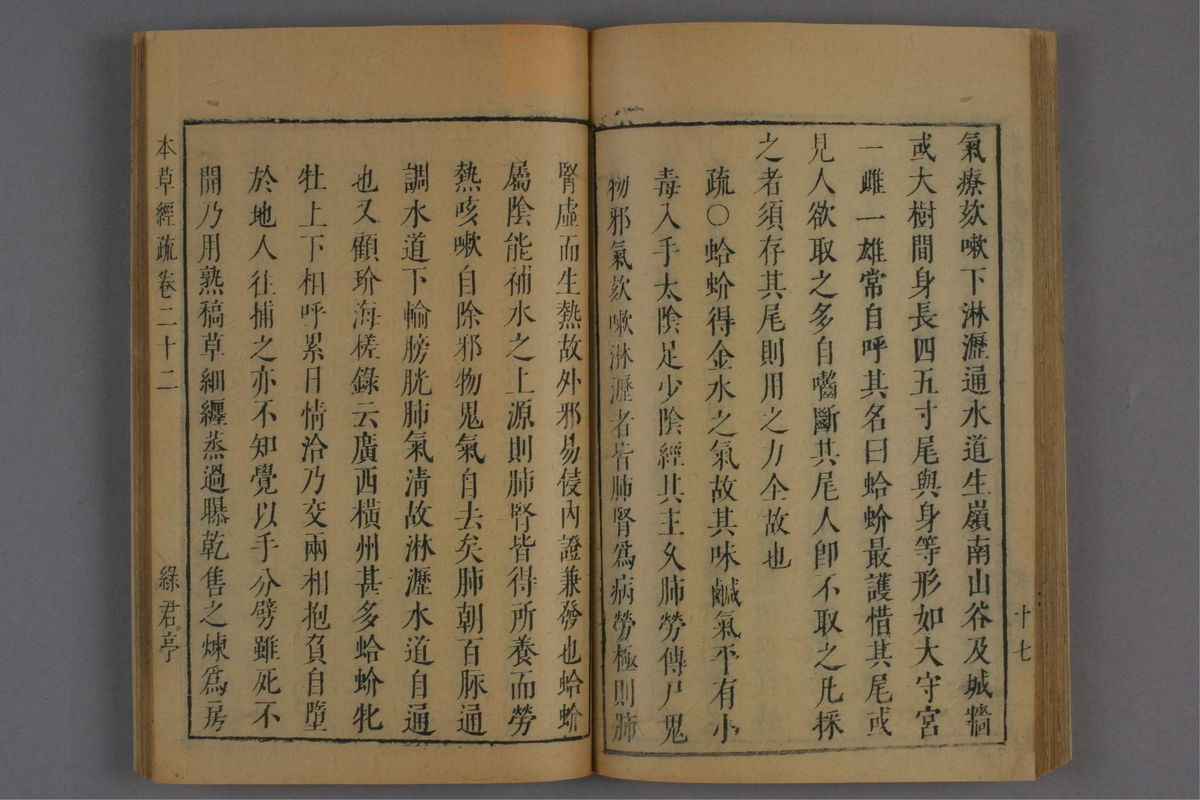 氣療欬嗽下淋瀝通水道生嶺南山谷及城牆
或大樹間身長四五寸尾與身等形如大守宮
一雌一雄常自呼其名曰蛤蚧最護惜其尾或
見人欲取之多自嚙斷其尾人卽不取之凡採
之者須存其尾則用之力全故也
疏○蛤蚧得金水之氣故其味鹹氣平有小
毒入手太陰足少陰經其主久肺勞傳尸鬼
物邪氣欬嗽淋瀝者皆肺腎爲病勞極則肺
十七
腎虛而生熱故外邪易侵內證兼發也蛤蚧
屬陰能補水之上源則肺腎皆得所養而勞
熱咳嗽自除邪物鬼氣自去矣肺朝百脈通
調水道下輸膀胱肺氣清故淋瀝水道自通
也又顧玠海槎錄云廣西橫州甚多蛤蚧牝
牡上下相呼累日情洽乃交兩相抱負自墮
於地人往捕之亦不知覺以手分劈雖死不
開乃用熟稿草細纏蒸過曝乾售之煉爲房
本草經疏卷二十二
綠君亭